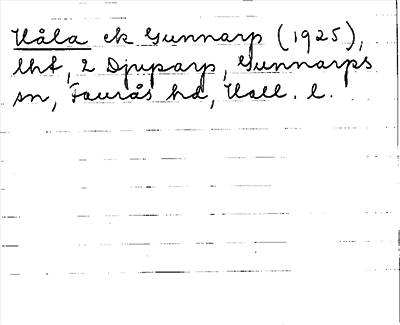 Håla ek Gunnarp (1925),
lht, 2 Djuparp, Gunnarps
sn, Faurås hd, Hall. l.